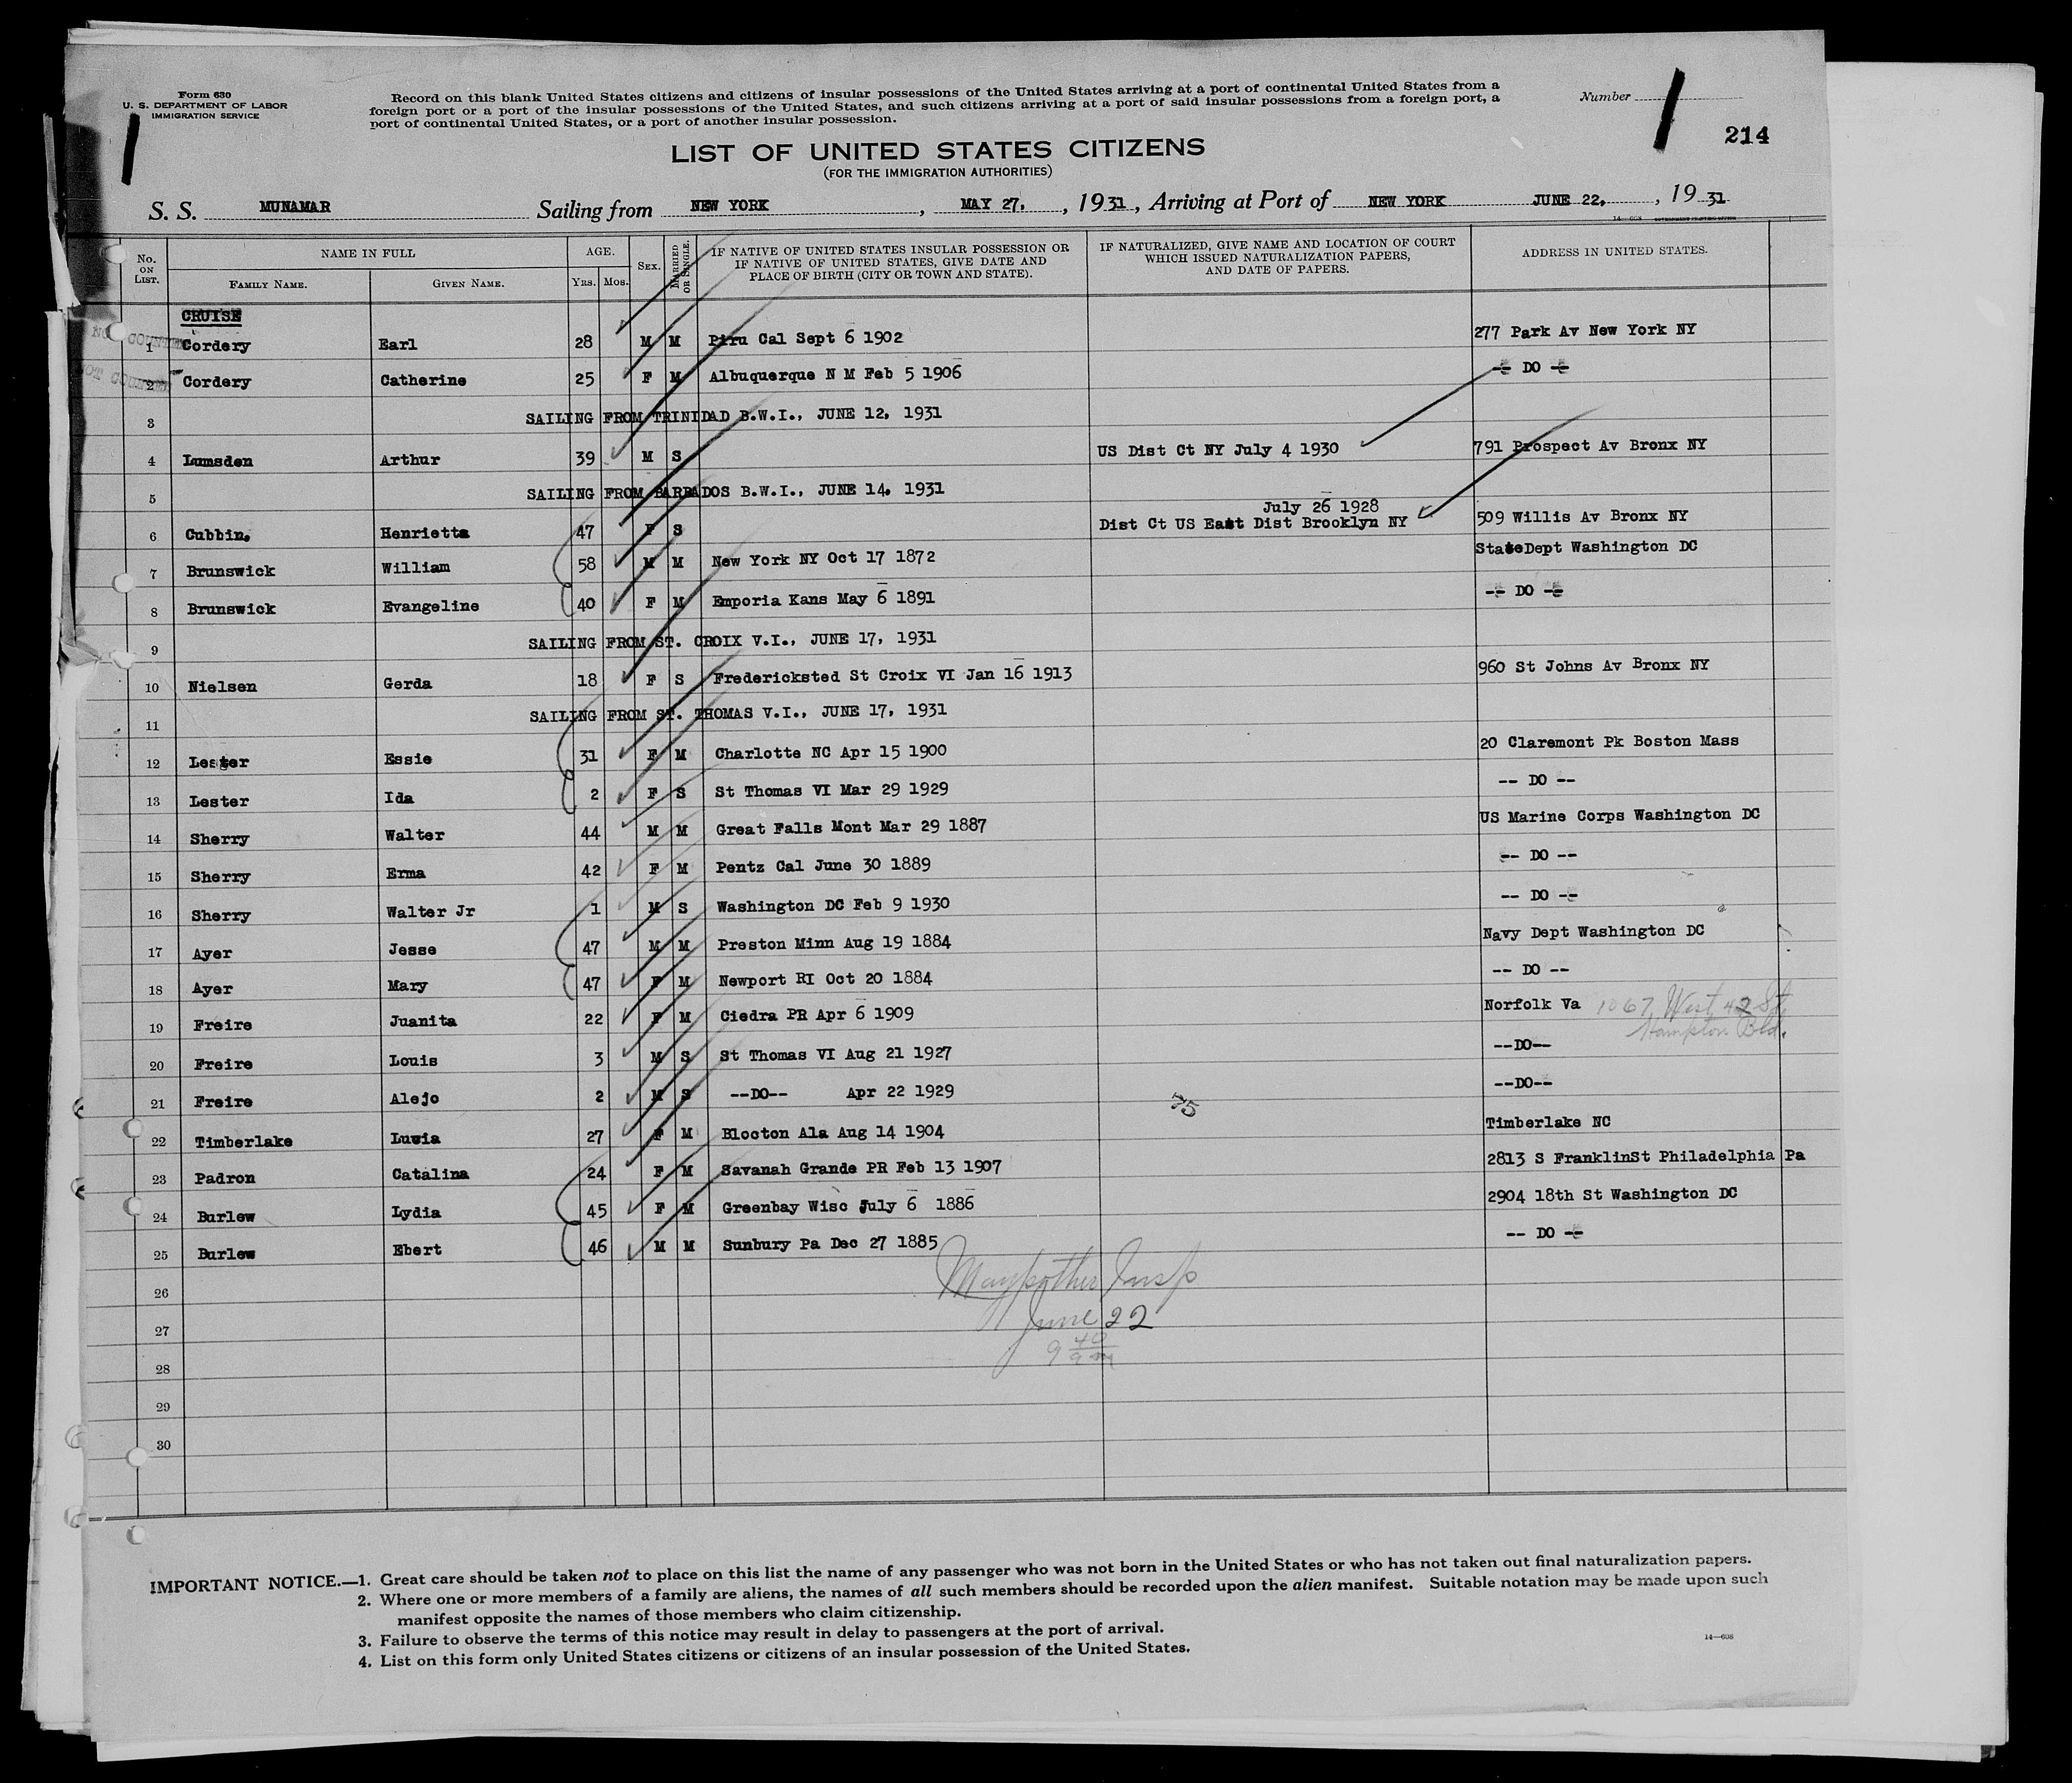 Form 630
U. S. DEPARTMENT OF LABOR
IMMIGRATION SERVICE
Record on this blank United States citizens and citizens of insular possessions of the United States arriving at a port of continental United States from a
foreign port or a port of the insular possessions of the United States, and such citizens arriving at a port of said insular possessions from a foreign port, a
port of continental United States, or a port of another insular possession.
Number
214
LIST OF UNITED STATES CITIZENS
(FOR THE IMMIGRATION AUTHORITIES)
S. S. MUNAMAR Sailing from NEW YORK, MAY 27, 1931, Arriving at Port of NEW YORK JUNE 22, 1931
14—608
No. ON LIST. NAME IN FULL AGE. SEX. MARRIED OR SINGLE. IF NATIVE OF UNITED STATES INSULAR POSSESSION OR IF NATIVE OF UNITED STATES, GIVE DATE AND PLACE OF BIRTH (CITY OR TOWN AND STATE). IF NATURALIZED, GIVE NAME AND LOCATION OF COURT WHICH ISSUED NATURALIZATION PAPERS, AND DATE OF PAPERS. ADDRESS IN UNITED STATES.
FAMILY NAME. GIVEN NAME. YRS. MOS.
CRUISE
1 Cordery Earl 28 M M Piru Cal Sept 6 1902 277 Park Av New York NY
2 Cordery Catherine 25 F M Albuquerque N M Feb 5 1906 -- DO --
3 SAILING FROM TRINIDAD B.W.I., JUNE 12, 1931
4 Lumsden Arthur 39 M S US Dist Ct NY July 4 1930 791 Prospect Av Bronx NY
5 SAILING FROM BARBADOS B.W.I., JUNE 14. 1931
July 26 1928
6 Cubbin. Henrietta 47 F S Dist Ct US East Dist Brooklyn NY 509 Willis Av Bronx NY
7 Brunswick William 58 M M New York NY Oct 17 1872 StateDept Washington DC
8 Brunswick Evangeline 40 F M Emporia Kans May 6 1891 -- DO --
9 SAILING FROM ST. CROIX V.I., JUNE 17, 1931
10 Nielsen Gerda 18 F S Fredericksted St Croix VI Jan 16 1913 960 St Johns Av Bronx NY
11 SAILING FROM ST. THOMAS V.I., JUNE 17, 1931
12 Lester Essie 31 F M Charlotte NC Apr 15 1900 20 Claremont Pk Boston Mass
13 Lester Ida 2 F S St Thomas VI Mar 29 1929 -- DO --
14 Sherry Walter 44 M M Great Falls Mont Mar 29 1887 US Marine Corps Washington DC
15 Sherry Erma 42 F M Pentz Cal June 30 1889 -- DO --
16 Sherry Walter Jr 1 M S Washington DC Feb 9 1930 -- DO --
17 Ayer Jesse 47 M M Preston Minn Aug 19 1884 Navy Dept Washington DC
18 Ayer Mary 47 F M Newport RI Oct 20 1884 -- DO --
19 Freire Juanita 22 F M Ciedra PR Apr 6 1909 Norfolk Va 1067 West 42 St
Hampton Bld.
20 Freire Louis 3 M S St Thomas VI Aug 21 1927 --DO--
21 Freire Alejo 2 M S --DO-- Apr 22 1929 --DO--
75
22 Timberlake 27 F M Blocton Ala Aug 14 1904 Timberlake NC
23 Padron Catalina 24 F M Savanah Grande PR Feb 13 1907 2813 S FranklinSt Philadelphia Pa
24 Burlew Lydia 45 F M Greenbay Wisc July 6 1886 2904 18th St Washington DC
25 Burlew Ebert 46 M M Sunbury Pa Dec 27 1885 -- DO --
26
Insp
27 June 22
28 9 40 am
29
30
IMPORTANT NOTICE.—1. Great care should be taken not to place on this list the name of any passenger who was not born in the United States or who has not taken out final naturalization papers.
2. Where one or more members of a family are aliens, the names of all such members should be recorded upon the alien manifest. Suitable notation may be made upon such
manifest opposite the names of those members who claim citizenship.
3. Failure to observe the terms of this notice may result in delay to passengers at the port of arrival.
4. List on this form only United States citizens or citizens of an insular possession of the United States.
14—608